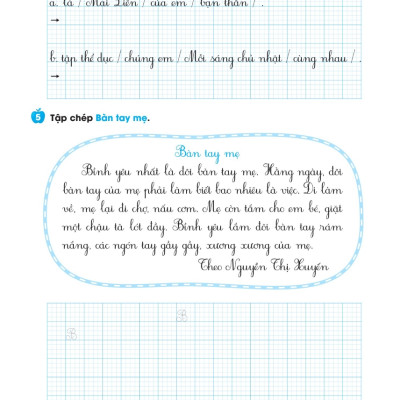 a. là / Mai Liên / của em / bạn thân / .
→
b. tập thể dục / chúng em / Mỗi sáng chủ nhật / cùng nhau / .
→
5 Tập chép Bàn tay mẹ.
Bàn tay mẹ
Bình yêu nhất là đôi bàn tay mẹ. Hàng ngày, đôi
bàn tay của mẹ phải làm biết bao nhiêu là việc. Đi làm
về, mẹ lại đi chợ, nấu cơm. Mẹ còn tắm cho em bé, giặt
một chậu tã lót đầy. Bình yêu lắm đôi bàn tay rám
nắng, các ngón tay gầy gầy, xương xương của mẹ.
Theo Nguyễn Thị Xuyến
B
B